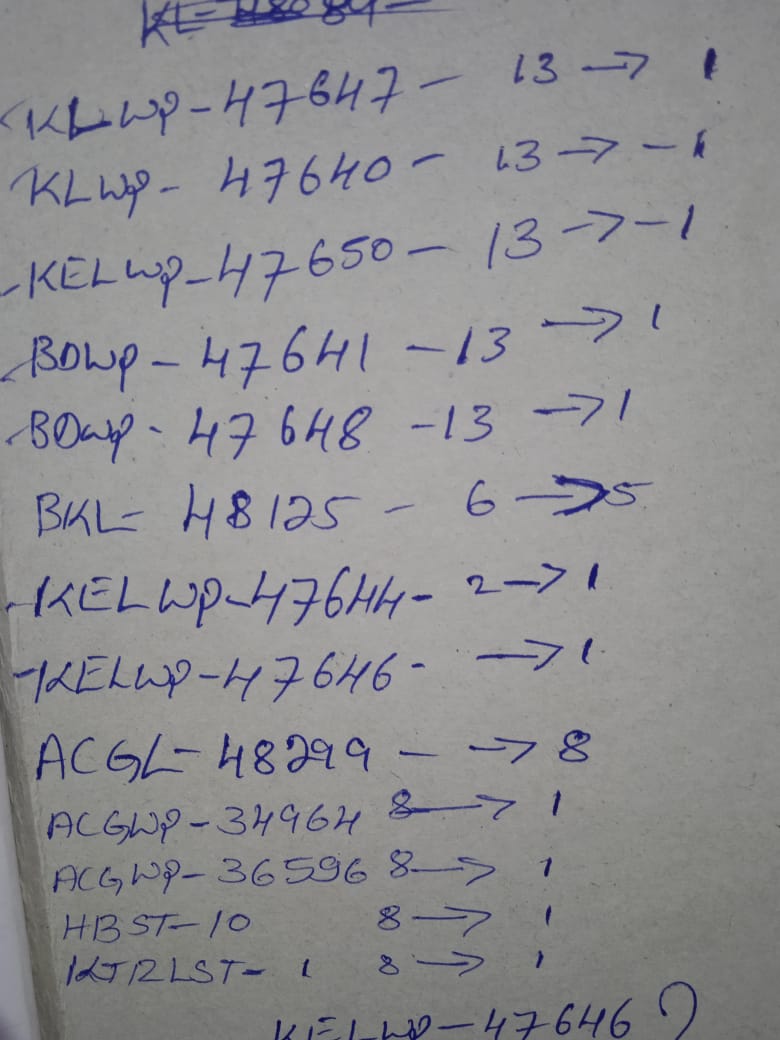 KLWP - 47647 - 13 → 1
KLWP - 47640 - 13 → - 1
- KELWP - 47650 - 13 → - 1
- BDWP - 47641 - 13 → 1
- BDWP - 47648 - 13 → 1
BKL - 48125 - 6 → 5
- KELWP - 47644 - 2 → 1
- KELWP - 47646 - → 1
ACGL - 48299 - → 8
ACGWP - 34964 8 → 1
ACGWP - 36596 8 → 1
HBST - 10 8 → 1
KTRLST - 1 8 → 1
KELWP - 47646 ?